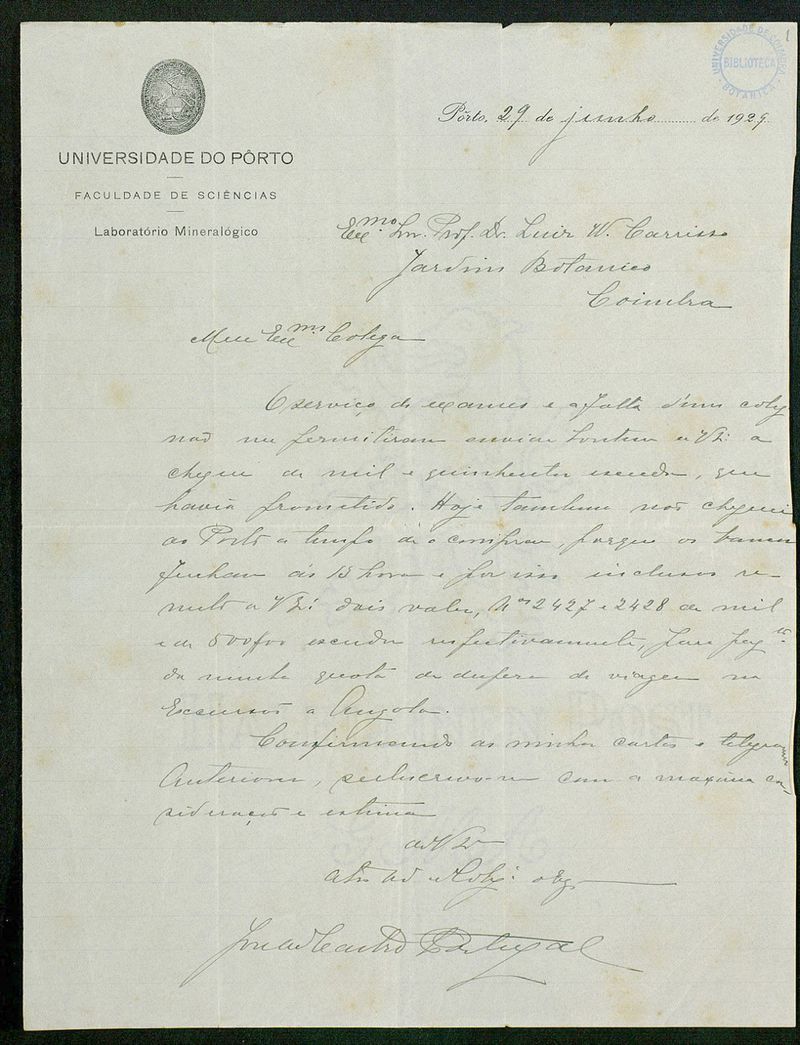 1
UNIVERSIDADE DE COIMBRA
BIBLIOTECA
BOTANICA
UNIVERSIDADE DO PÔRTO
FACULDADE DE SCIÊNCIAS
Laboratório Mineralógico
Pôrto, 29 de junho de 1929
Exmo. Snr. Prof. Dr. Luiz W. Carrisso
Jardim Botanico
Coimbra
Meu Exmo Colega
O serviço de exames e a falta d'um coleg
não me permitiram enviar hontem a V. Exª o
cheque de mil e quinhentos escudos, que
havia prometido. Hoje tambem não cheguei
ao Porto a tempo de o comprar, porque os bancos
fecham ás 13 horas e por isso inclusos re-
meto a V. Exª dois vales, Nos 2427 e 2428 de mil
e de 500$00 escudos respectivamente, para pagto
da minha quota de despesa de viagem na
Excursão a Angola.
Confirmando as minhas cartas e telegramas
anteriores, subscrevo-me com a maxima con-
sideração e estima
de V. Exª
José de Castro Portugal